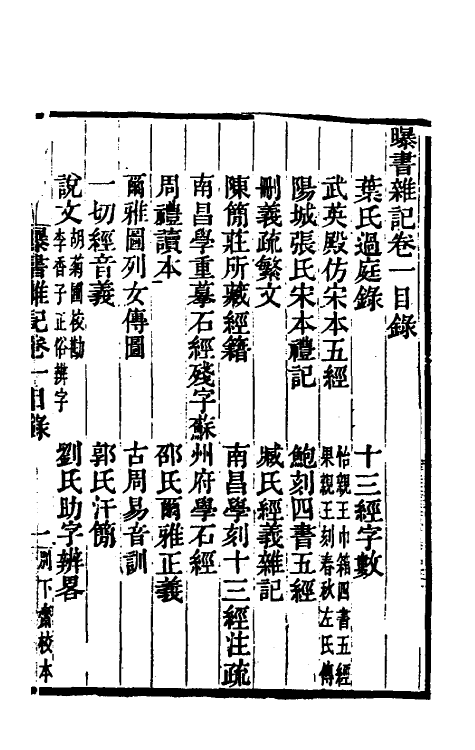 曝書雜記卷一目錄
葉氏過庭錄　十三經字數
武英殿仿宋本五經　怡親王巾箱四書五經
果親王刻春秋左氏傳
陽城張氏宋本禮記　鮑刻四書五經
刪義疏繁文　臧氏經義雜記
陳簡莊所藏經籍　南昌學刻十三經注疏
南昌學重摹石經殘字蘇州府學石經
周禮讀本　邵氏爾雅正義
爾雅圖列女傳圖　古周易音訓
一切經音義　郭氏汗簡
說文胡菊圃校勘
李香子正俗辨字　劉氏助字辨畧
曝書雜記卷一目錄　一　別下齋校本